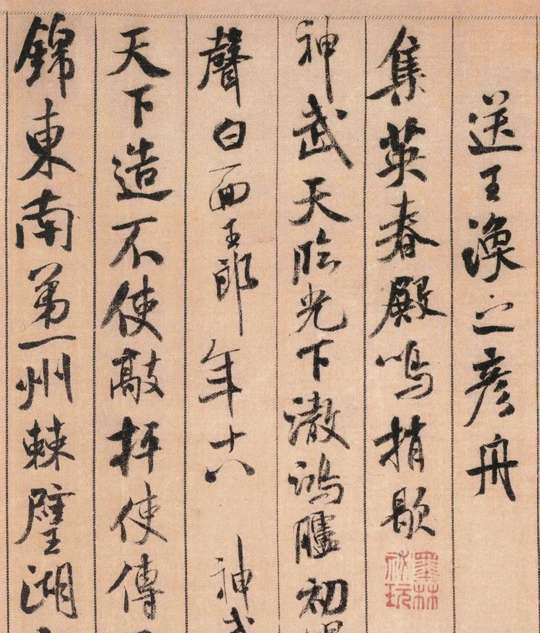 送王渙之彥舟
集英春殿鳴捎歇
墨林秘玩
神武天臨光下澈鴻臚初
聲白面玉郎年十八 神武
天下造不使敲抨使傳
錦東南第一州棘璧湖